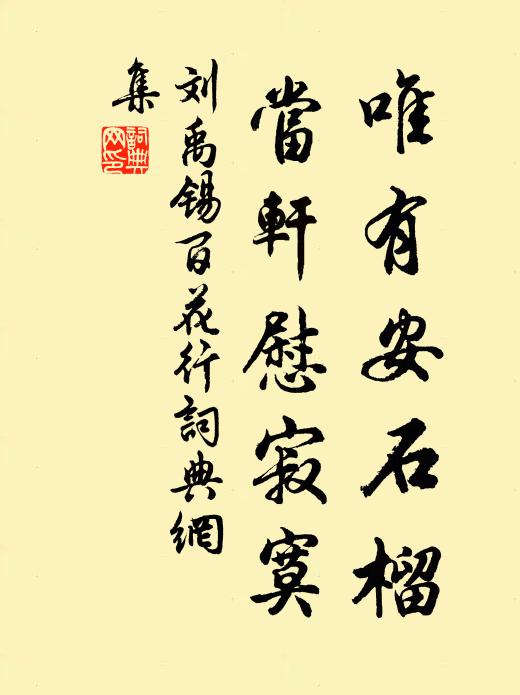 唯有安石榴
當軒慰寂寞
刘禹锡百花行詞典網
集
詞典
网印